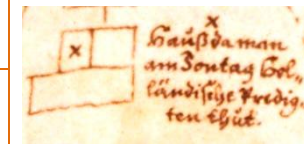 x
x
Haußda man
am Sontag Hol„
ländische Predig
ten thut.